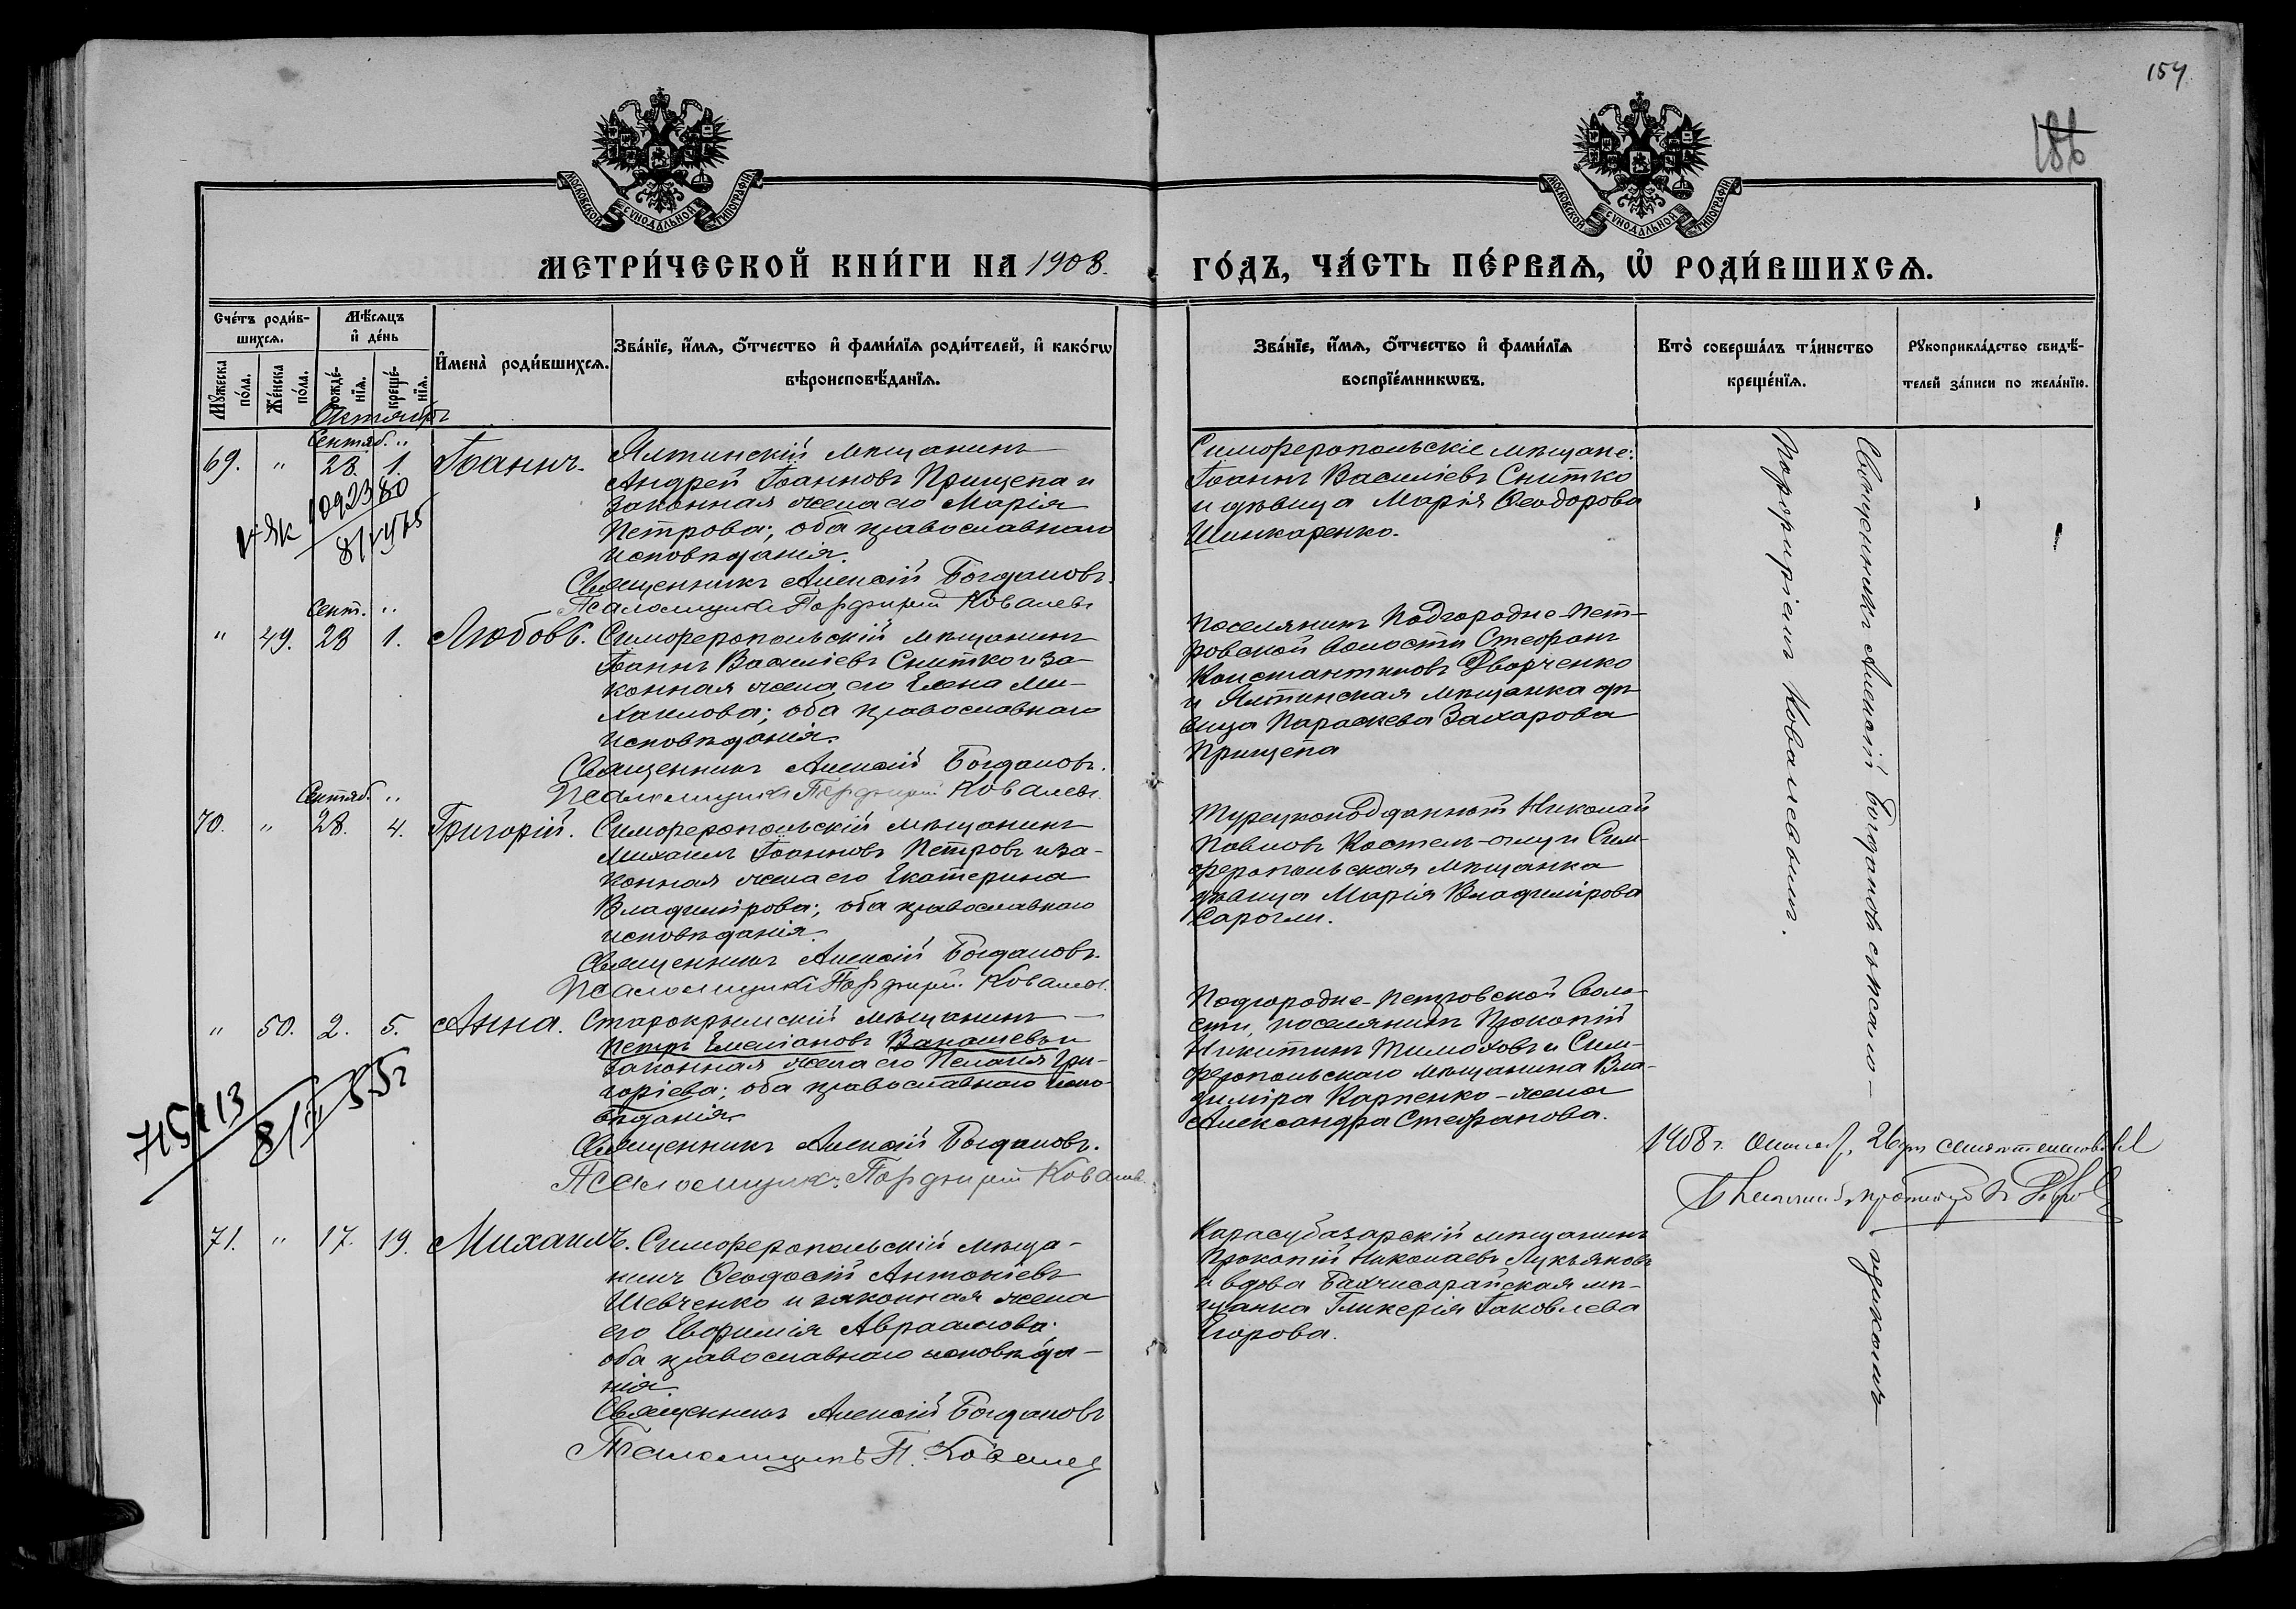 154
186
МОСКОВСКОЙ СѴНОДАЛЬНОЙ ТИПОГРАФІИ
МОСКОВСКОЙ СѴНОДАЛЬНОЙ ТИПОГРАФІИ
МЕТРИ́ЧЕСКОЙ КНИ́ГИ НА 1908.
ГО́ДЪ, ЧА́СТЬ ПЕ́РВАѦ, Ѽ РОДИ́ВШИХСѦ.
Счéтъ роди́в-
шихсѧ.
Мꙋ́жеска
по́ла.
Же́нска
по́ла.
Мѣ́сѧцъ
и҆ де́нь
рожде́-
нїѧ.
креще́-
нїѧ.
И҆мена̀ роди́вшихсѧ.
Зва́нїе, и҆́мѧ, ѻ҆́тчество и҆ фами́лїѧ роди́телей, и҆ како́гѡ
вѣроисповѣ́данїѧ.
Зва́нїе, и҆́мѧ, ѻ҆́тчество и҆ фами́лїѧ
воспрїе́мникѡвъ.
Кто̀ соверша́лъ та́инство
креще́нїѧ.
Рꙋкоприкла́дство свидѣ́-
телей за́писи по жела́нїю.
Октябрь
Сентяб. "
69. " 28. 1. Іоаннъ.
Ялтинскій мѣщанинъ
Андрей Іоанновъ Прищепа и
законная жена его Марія
Петрова; оба православнаго
исповѣданія.
Священникъ Алексій Богдановъ.
Псаломщикъ Порфирій Ковалевъ
Симферопольскіе мѣщане:
Іоаннъ Василіевъ Снитко
и дѣвица Марія Ѳеодорова
Шинкаренко.
Сент. "
" 49. 28 1. Любовь.
Симферопольскій мѣщанинъ
Іоаннъ Василіевъ Снитко и за-
конная жена его Елена Ми-
хаилова; оба православнаго
исповѣданія.
Священникъ Алексій Богдановъ.
Псаломщикъ Порфирій Ковалевъ.
Поселянинъ Подгородне-Пет-
ровской волости Стефанъ
Константиновъ Дворченко
и Ялтинская мѣщанка дѣ-
вица Параскева Захарова
Прищепа
Сентяб. "
70. " 28. 4. Григорій.
Симферопольскій мѣщанинъ
Михаилъ Іоанновъ Петровъ и за-
конная жена его Екатерина
Владимірова; оба православнаго
исповѣданія.
Священникъ Алексій Богдановъ.
Псаломщикъ Порфирій Ковалевъ.
Турецкоподданный Николай
Павловъ Костемъ-оглу и Сим-
феропольская мѣщанка
дѣвица Марія Владимірова
Сарогли.
" 50. 2. 5. Анна.
Старокрымскій мѣщанинъ
Петръ Емеліановъ Ванашевъ и
законная жена его Пелагія Гри-
горіева; оба православнаго испо-
вѣданія.
Священникъ Алексій Богдановъ.
Псаломщикъ Порфирій Ковалев.
Подгородне-Петровской воло-
сти, поселянинъ Прокопій
Никитинъ Тимоховъ и Сим-
феропольскаго мѣщанина Вла-
диміра Карпенко - жена
Александра Стефанова.
71. " 17. 19. Михаилъ.
Симферопольскій мѣща-
нинъ Ѳеодосій Антоніевъ
Шевченко и законная жена
его Евфимія Авраамова;
оба православнаго исповѣда-
нія.
Священникъ Алексій Богдановъ
Псаломщикъ П. Ковалев
Карасубазарскій мѣщанинъ
Прокопій Николаевъ Лукьяновъ
и вдова Бахчисарайская мѣ-
щанка Гликерія Іаковлева
Егорова.
Священникъ Алексій Богдановъ съ псалом-
щикомъ
Порфиріемъ Ковалевымъ.
1908 г. 26 дня
715113
8/II 55г